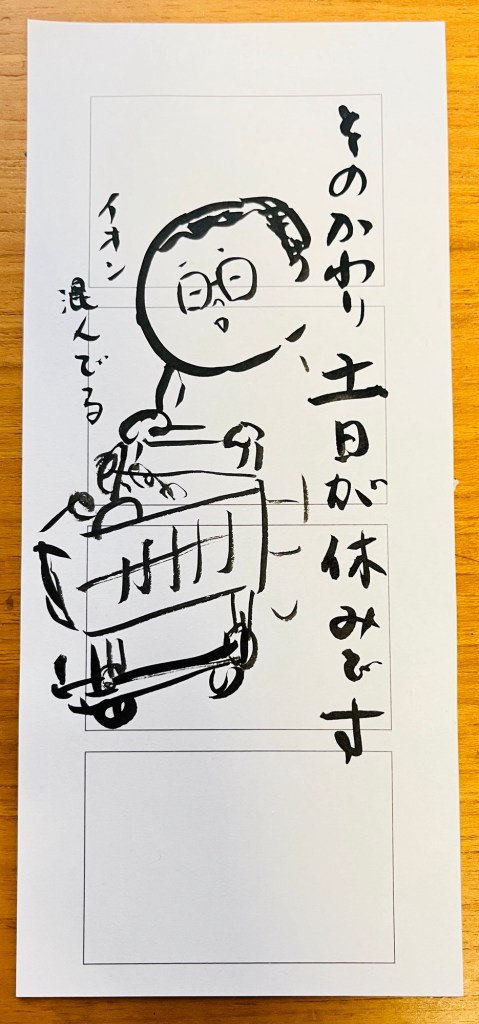 そのかわり土日が休みです
イオン
混んでる